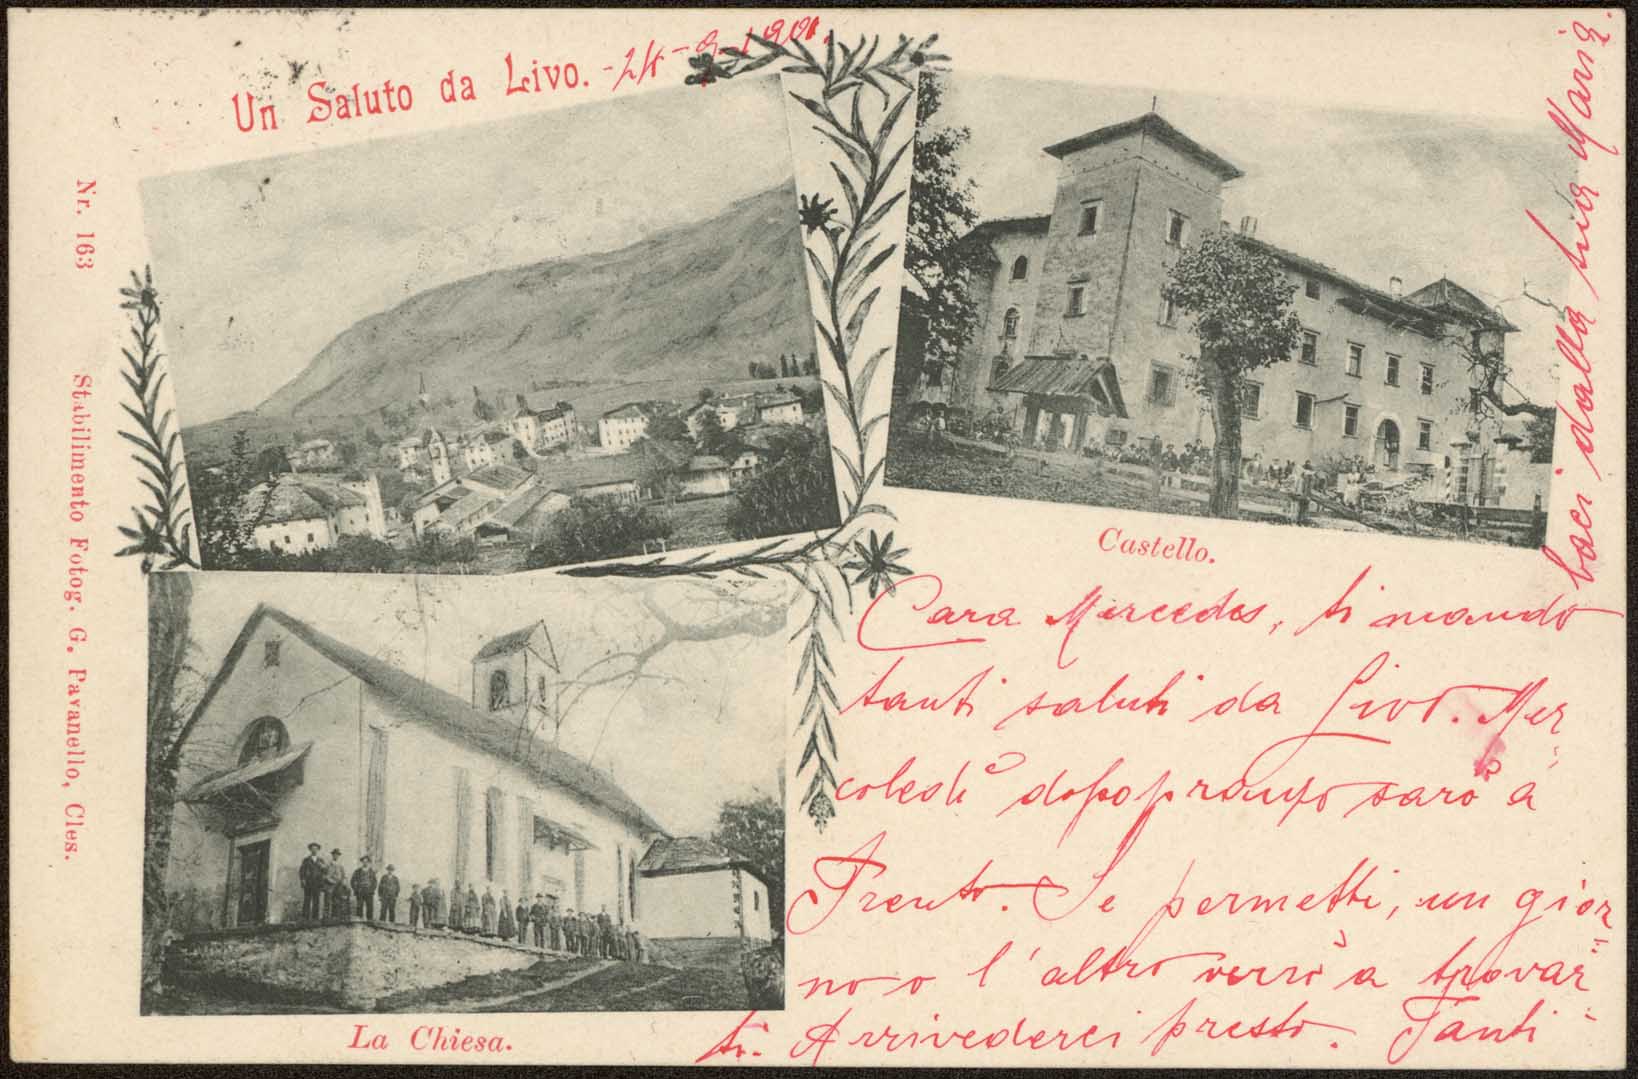 Un Saluto da Livo. - 24-9-1901.
Nr. 163
Stabilimento Fotog. G. Pavanello, Cles.
Castello.
La Chiesa.
Cara Mercedes, ti mando
tanti saluti da Livo. Mer
coledì dopopranzo sarò a
Trento. Se permetti, un gior
no o l'altro verrò a trovar
ti. Arrivederci presto. Tanti
baci dalla tua Maria.